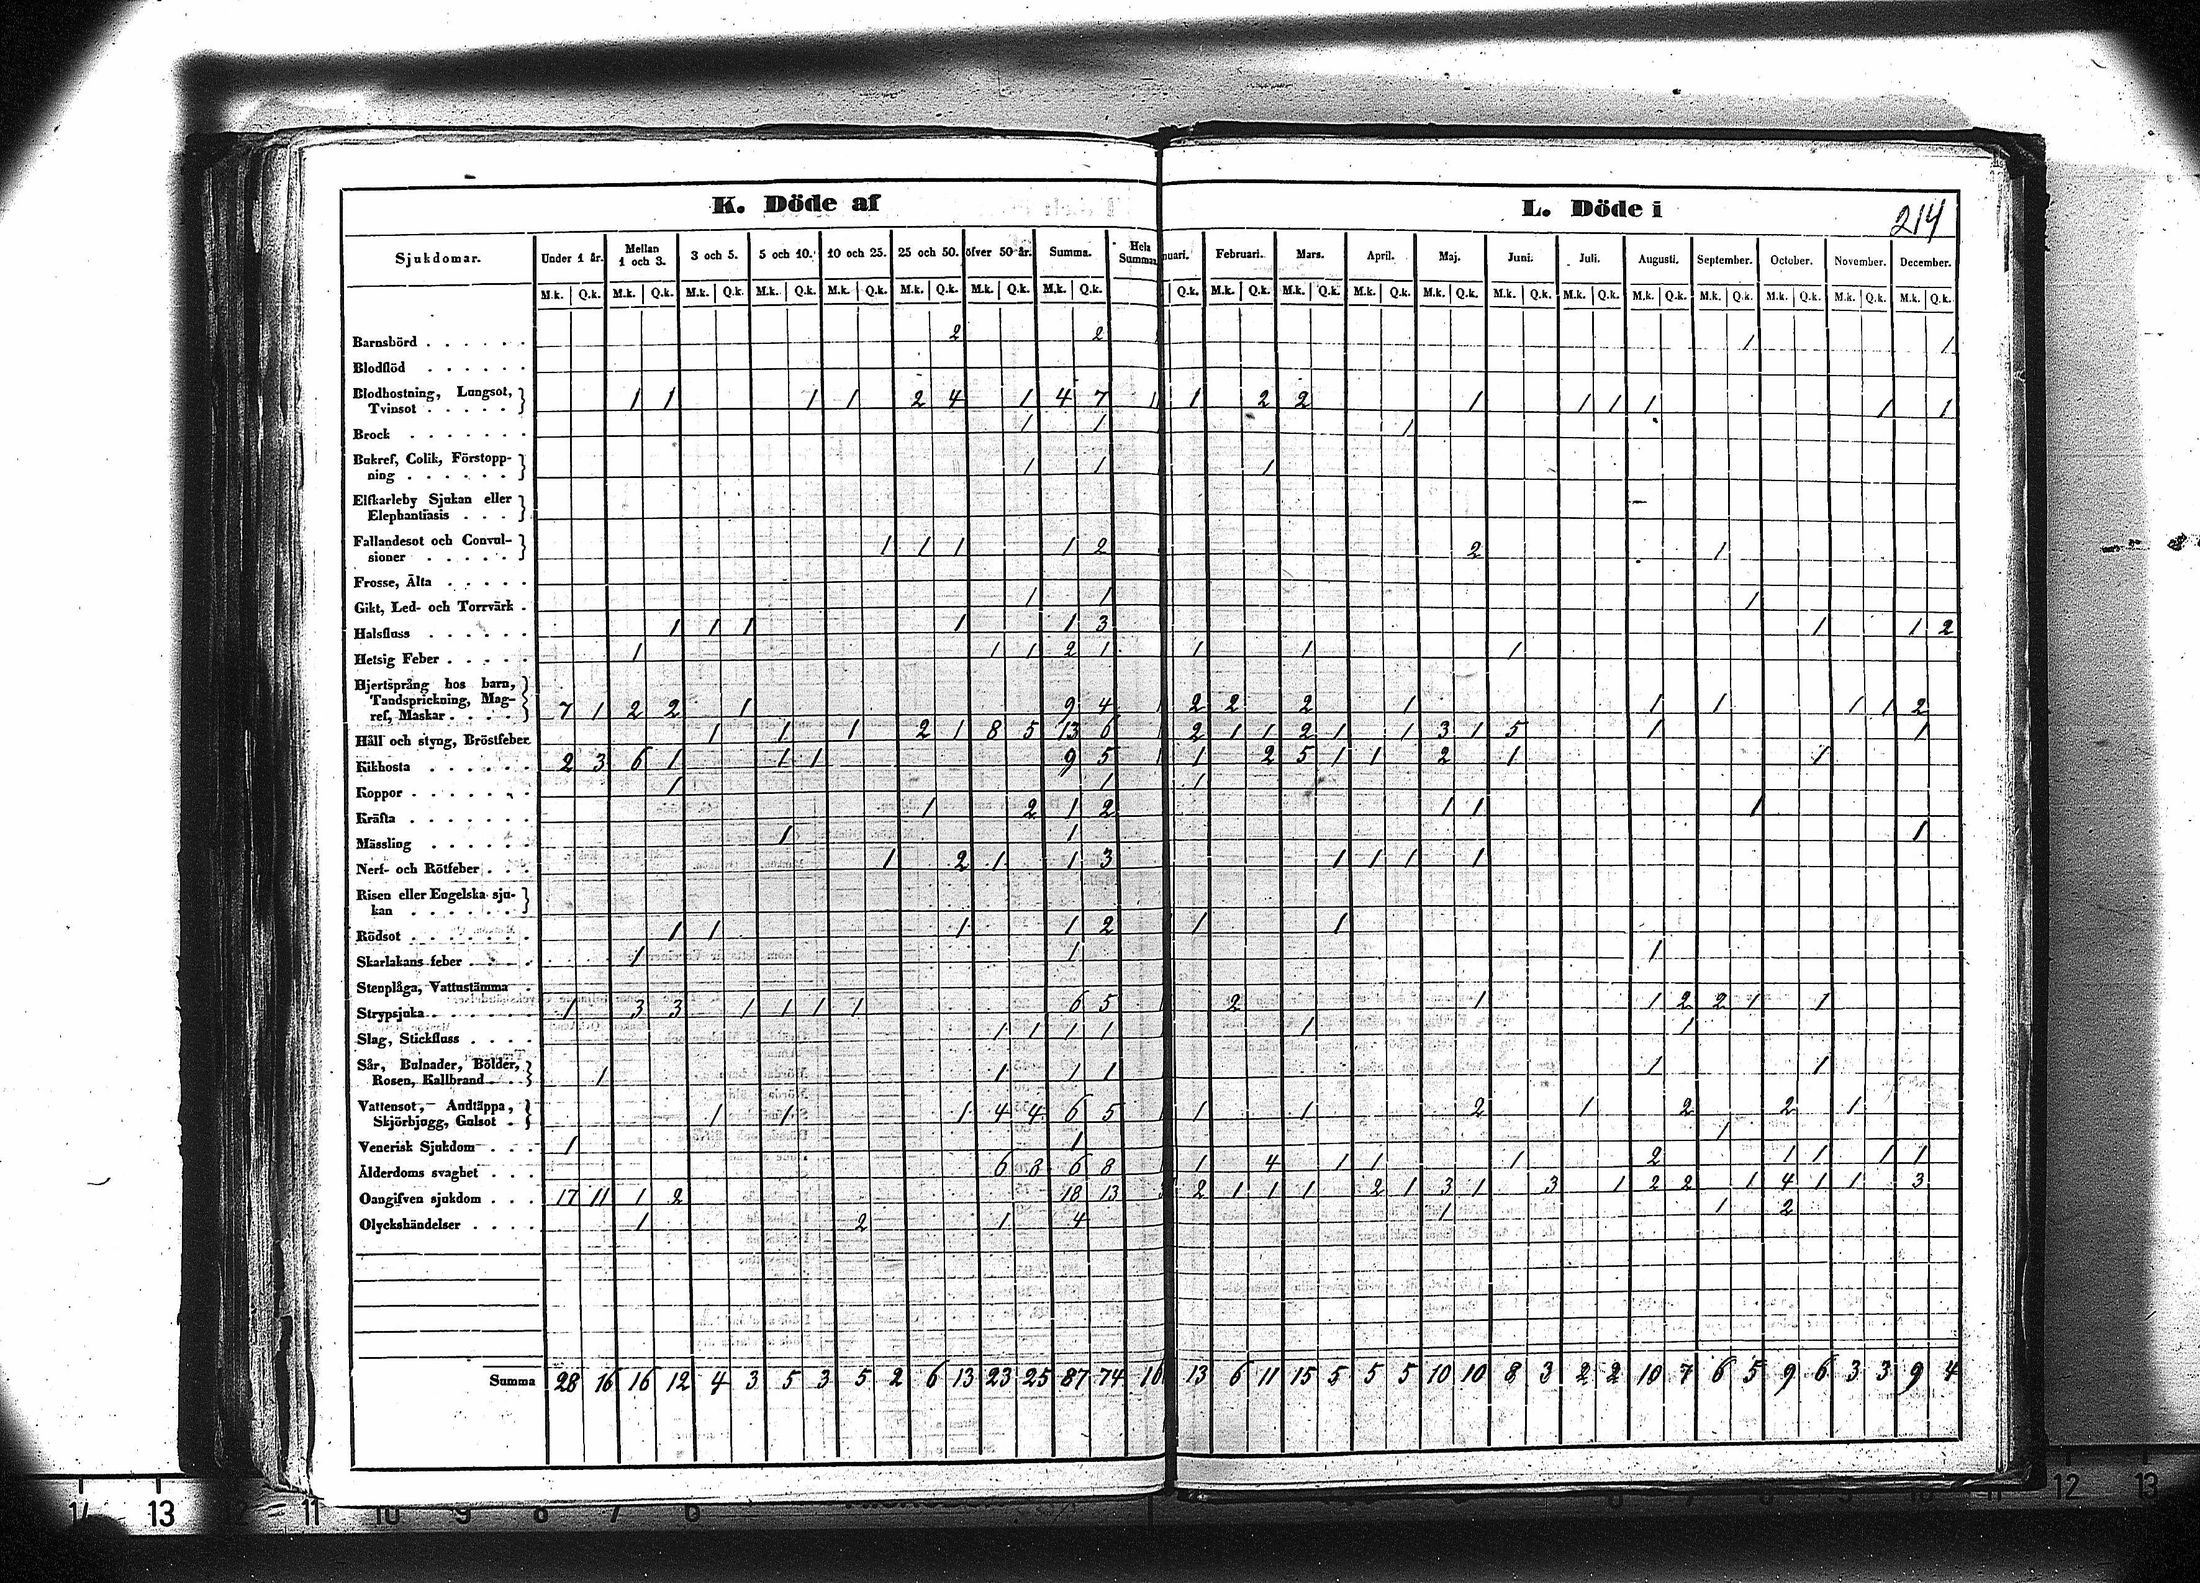 K. Döde af
L. Döde i
214
Sjukdomar. Under 1 år. Mellan 1 och 3. 3 och 5. 5 och 10. 10 och 25. 25 och 50. öfver 50 år. Summa. Hela Summa. nuari. Februari. Mars. April. Maj. Juni. Juli. Augusti. September. October. November. December.
M.k. Q.k. M.k. Q.k. M.k. Q.k. M.k. Q.k. M.k. Q.k. M.k. Q.k. M.k. Q.k. M.k. Q.k. Q.k. M.k. Q.k. M.k. Q.k. M.k. Q.k. M.k. Q.k. M.k. Q.k. M.k. Q.k. M.k. Q.k. M.k. Q.k. M.k. Q.k. M.k. Q.k. M.k. Q.k.
Barnsbörd 2 2 1 1
Blodflöd
Blodhostning, Lungsot,
Tvinsot 1 1 1 1 2 4 1 4 7 1 1 2 2 1 1 1 1 1 1
Brock 1 1 1
Bukref, Colik, Förstopp-
ning 1 1 1
Elfkarleby Sjukan eller
Elephantiasis
Fallandesot och Convul-
sioner 1 1 1 1 2 2 1
Frosse, Älta
Gikt, Led- och Torrvärk 1 1 1
Halsfluss 1 1 1 1 1 3 1 1 2
Hetsig Feber 1 1 1 2 1 1 1 1
Hjertsprång hos barn,
Tandsprickning, Mag-
ref, Maskar 7 1 2 2 1 9 4 1 2 2 2 1 1 1 1 1 2
Håll och styng, Bröstfeber 1 1 1 2 1 8 5 13 6 1 2 1 1 2 1 1 3 1 5 1 1
Kikhosta 2 3 6 1 1 1 9 5 1 1 2 5 1 1 2 1 1
Koppor 1 1 1
Kräfta 1 2 1 2 1 1 1
Mässling 1 1 1
Nerf- och Rötfeber 1 2 1 1 3 1 1 1 1
Risen eller Engelska sju-
kan
Rödsot 1 1 1 1 2 1 1
Skarlakans feber 1 1 1
Stenplåga, Vattustämma
Strypsjuka 1 3 3 1 1 1 1 6 5 1 2 1 1 2 2 1 1
Slag, Stickfluss 1 1 1 1 1 1
Sår, Bulnader, Bölder,
Rosen, Kallbrand 1 1 1 1 1 1
Vattensot, Andtäppa,
Skjörbjugg, Gulsot 1 1 1 4 4 6 5 1 1 1 2 1 2 2 1
Venerisk Sjukdom 1 1 1
Ålderdoms svaghet 6 8 6 8 1 1 4 1 1 1 2 1 1 1 1
Oangifven sjukdom 17 11 1 2 18 13 3 2 1 1 1 2 1 3 1 3 1 2 2 1 4 1 1 3
Olyckshändelser 1 2 1 4 1 1 2
Summa 28 16 16 12 4 3 5 3 5 2 6 13 23 25 87 74 16 13 6 11 15 5 5 5 10 10 8 3 2 2 10 7 6 5 9 6 3 3 9 4